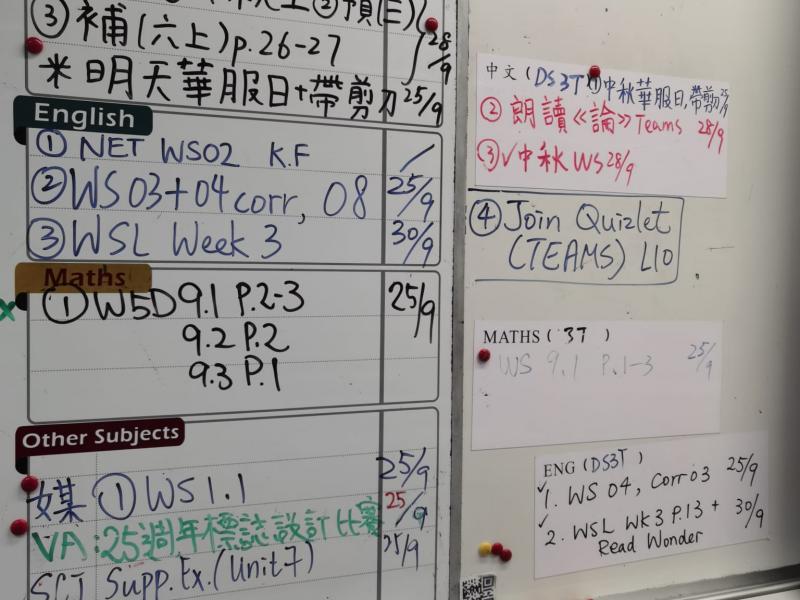 ③補(六上)p.26-27 28/9
＊明天華服日+帶剪刀 25/9
English
① NET WS02 K.F /
② WS 03+04 corr, 08 25/9
③ WSL Week 3 30/9
Maths
① W5D 9.1 P.2-3 25/9
9.2 P.2
9.3 P.1
Other Subjects
媒 ① WS 1.1 25/9
VA:25週年標誌設計比賽 25/9
Supp.Ex.(Unit 7) 25/9
中文 (DS3T) ①中秋華服日,帶剪 25/9
② 朗讀《論》Teams 28/9
③✓中秋 WS 28/9
④ Join Quizlet
(TEAMS) L10
MATHS ( 3T )
WS 9.1 P.1-3 25/9
ENG (DS3T)
✓1. WS 04, Corr 03 25/9
✓2. WSL WK3 P.13 + 30/9
Read Wonder